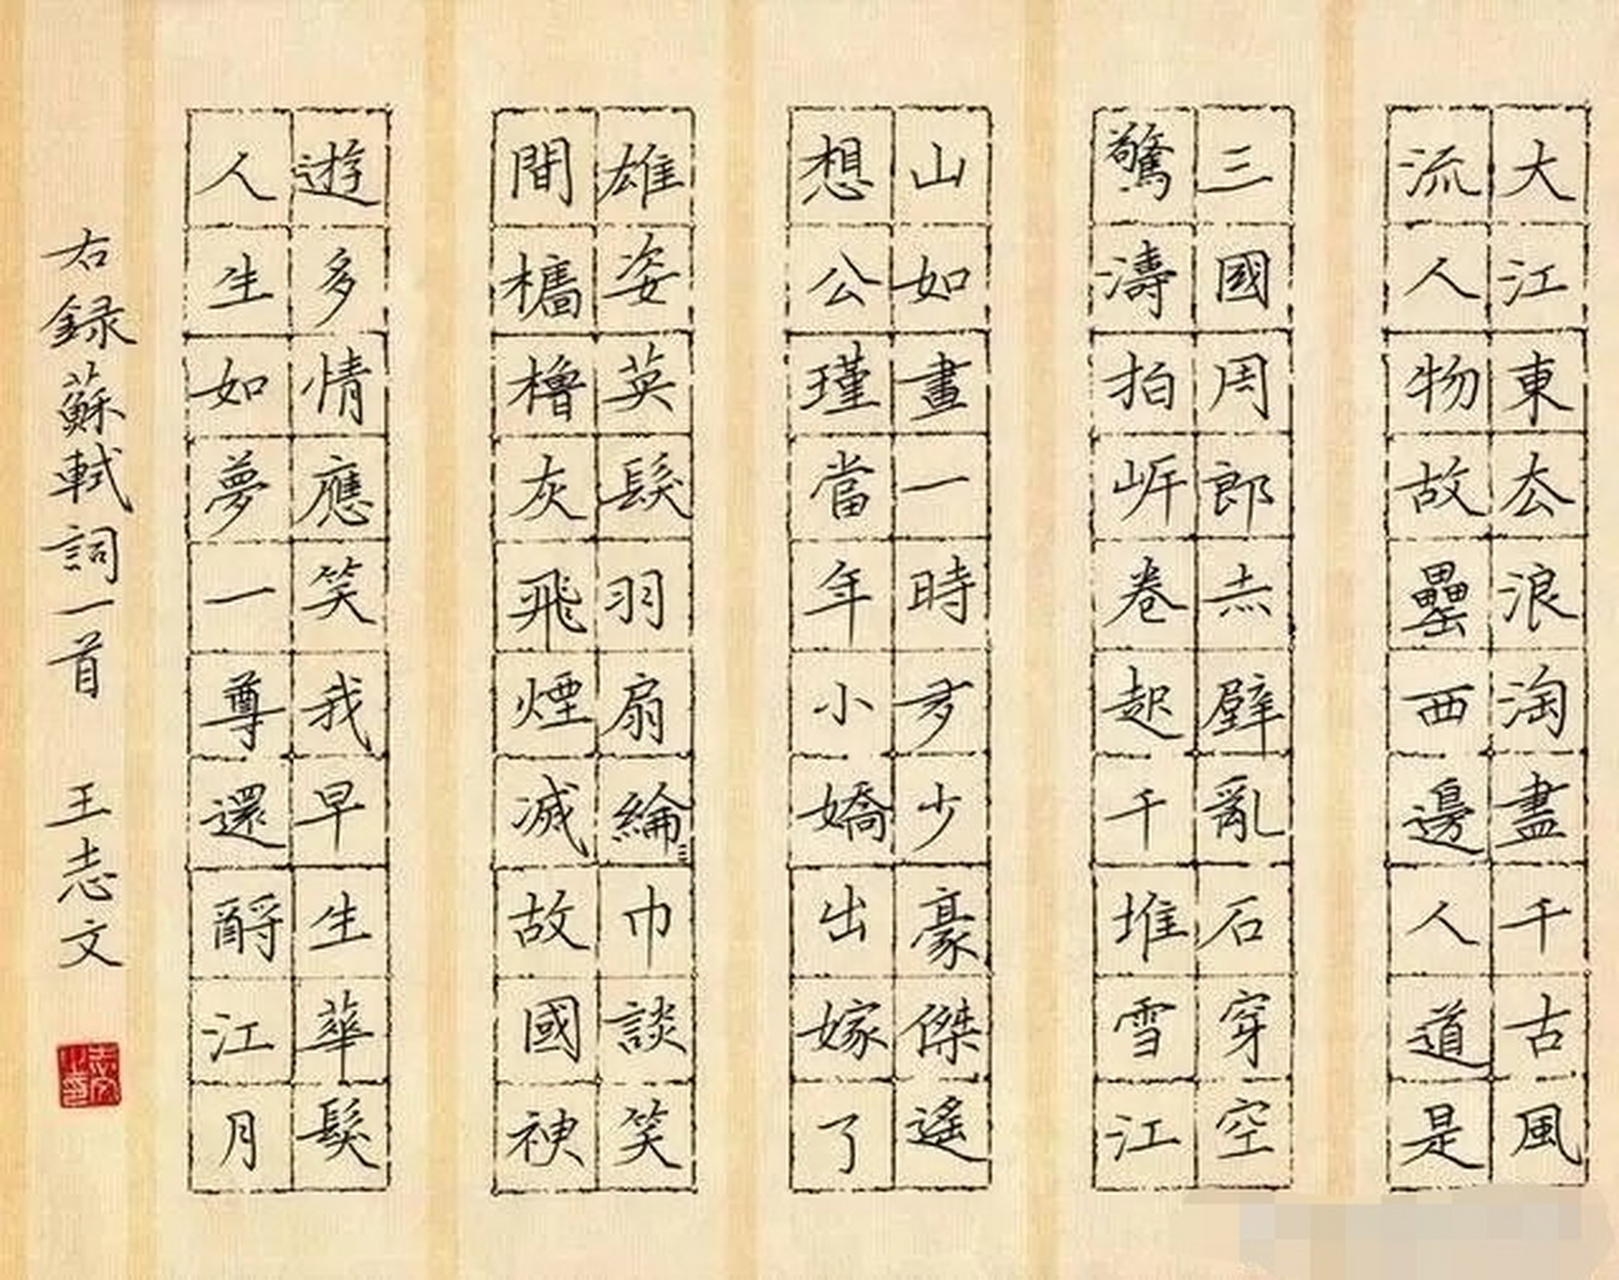 大江東厺浪淘盡千古風
流人物故壘西邊人道是
三國周郎赤壁亂石穿空
驚濤拍岸卷起千堆雪江
山如畫一時多少豪傑遙
想公瑾當年小嬌出嫁了
雄姿英髮羽扇綸巾談笑
間檣櫓灰飛煙滅故國神
遊多情應笑我早生華髮
人生如夢一尊還酹江月
右録蘇軾詞一首 王志文